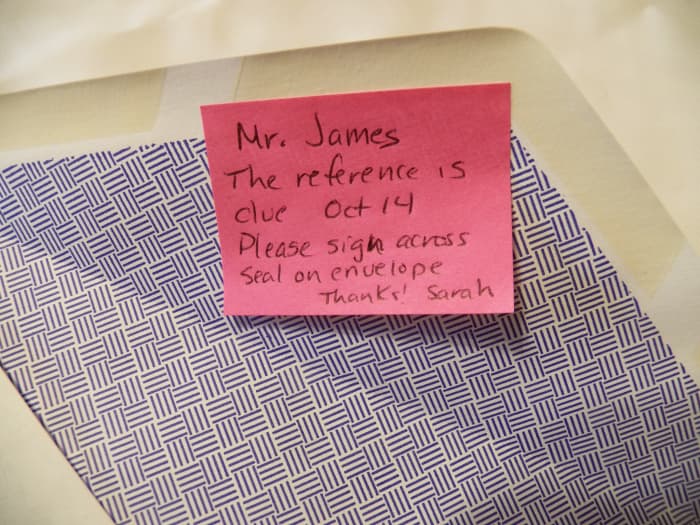 Mr. James
The reference is
due Oct 14
Please sign across
seal on envelope
Thanks! Sarah